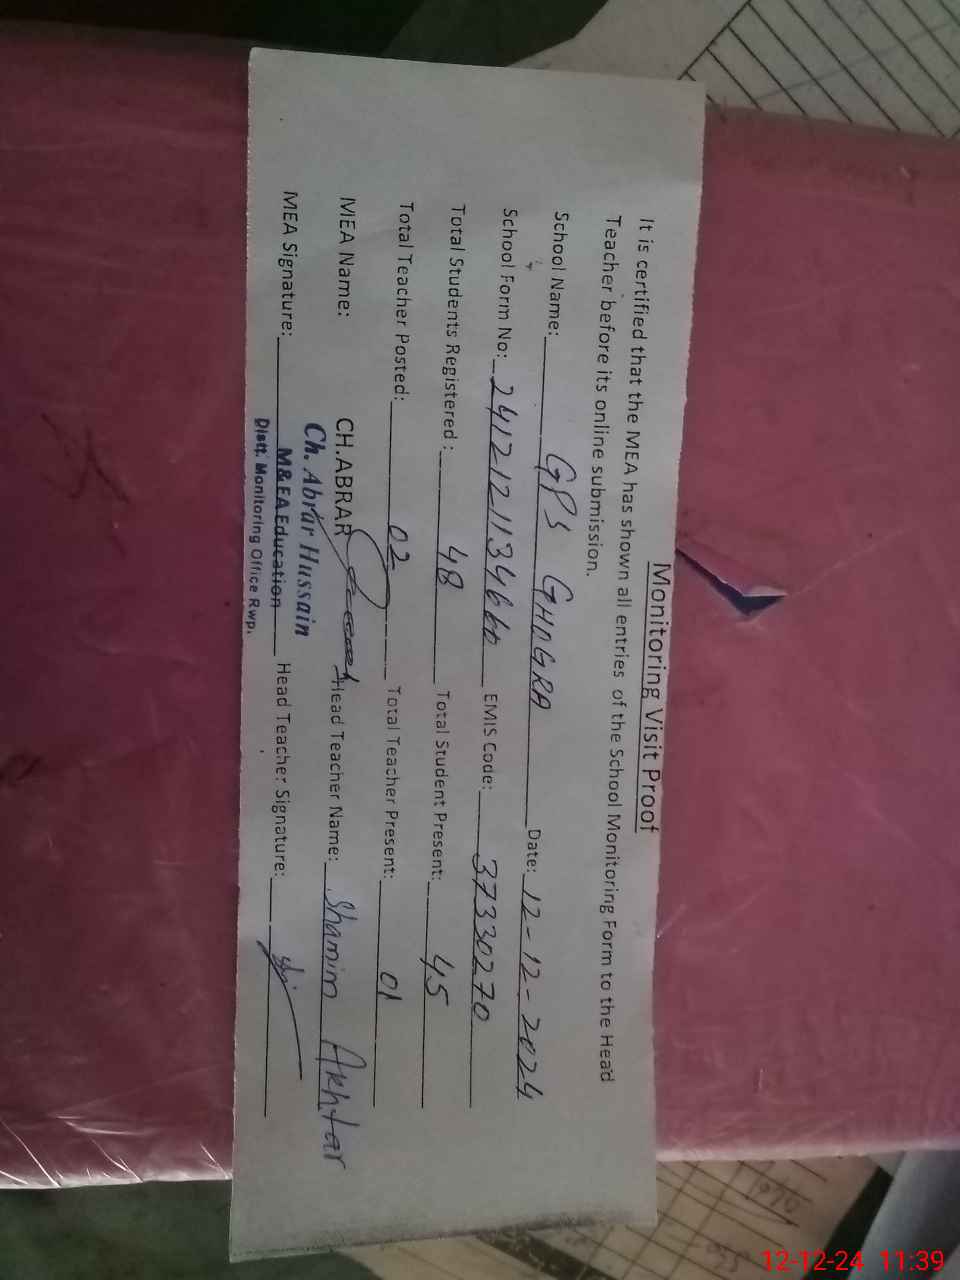 Monitoring Visit Proof
It is certified that the MEA has shown all entries of the School Monitoring Form to the Head
Teacher before its online submission.
School Name: GPS GHOGRA Date: 12-12-2024
School Form No: 2412121134660 EMIS Code: 37330270
Total Students Registered : 48 Total Student Present: 45
Total Teacher Posted: 02 Total Teacher Present: 01
MEA Name: CH.ABRAR Head Teacher Name: Shamim Akhtar
Ch. Abrar Hussain
MEA Signature: M&EA Education Head Teacher Signature:
Distt. Monitoring Office Rwp.
12-12-24 11:39